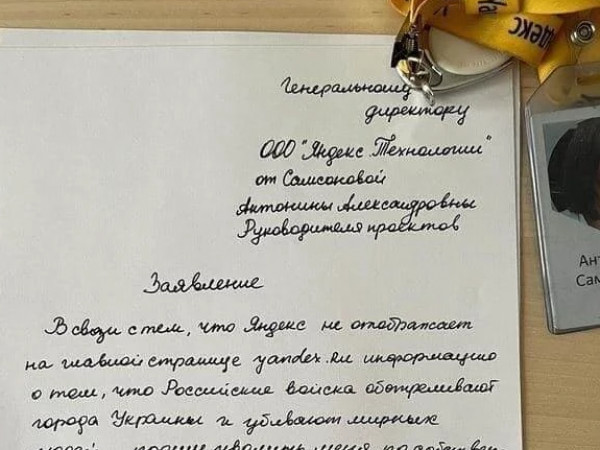 ндекс
Генеральному
директору
ООО "Яндекс.Технологии"
от Самсоновой
Антонины Александровны
Руководителя проектов
Заявление
В связи с тем, что Яндекс не отображает
на главной странице yandex.ru информацию
о том, что Российские войска обстреливают
города Украины и убивают мирных
прошу уволить меня по собствен
Ант
Сам